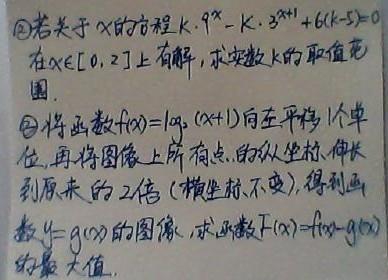 ②若关于x的方程k·9ˣ-k·3ˣ⁺¹+6(k-5)=0
在x∈[0,2]上有解,求实数k的取值范
围.
③将函数f(x)=log₂(x+1)向左平移1个单
位,再将图像上所有点的纵坐标伸长
到原来的2倍(横坐标不变),得到函
数y=g(x)的图像,求函数F(x)=f(x)-g(x)
的最大值.